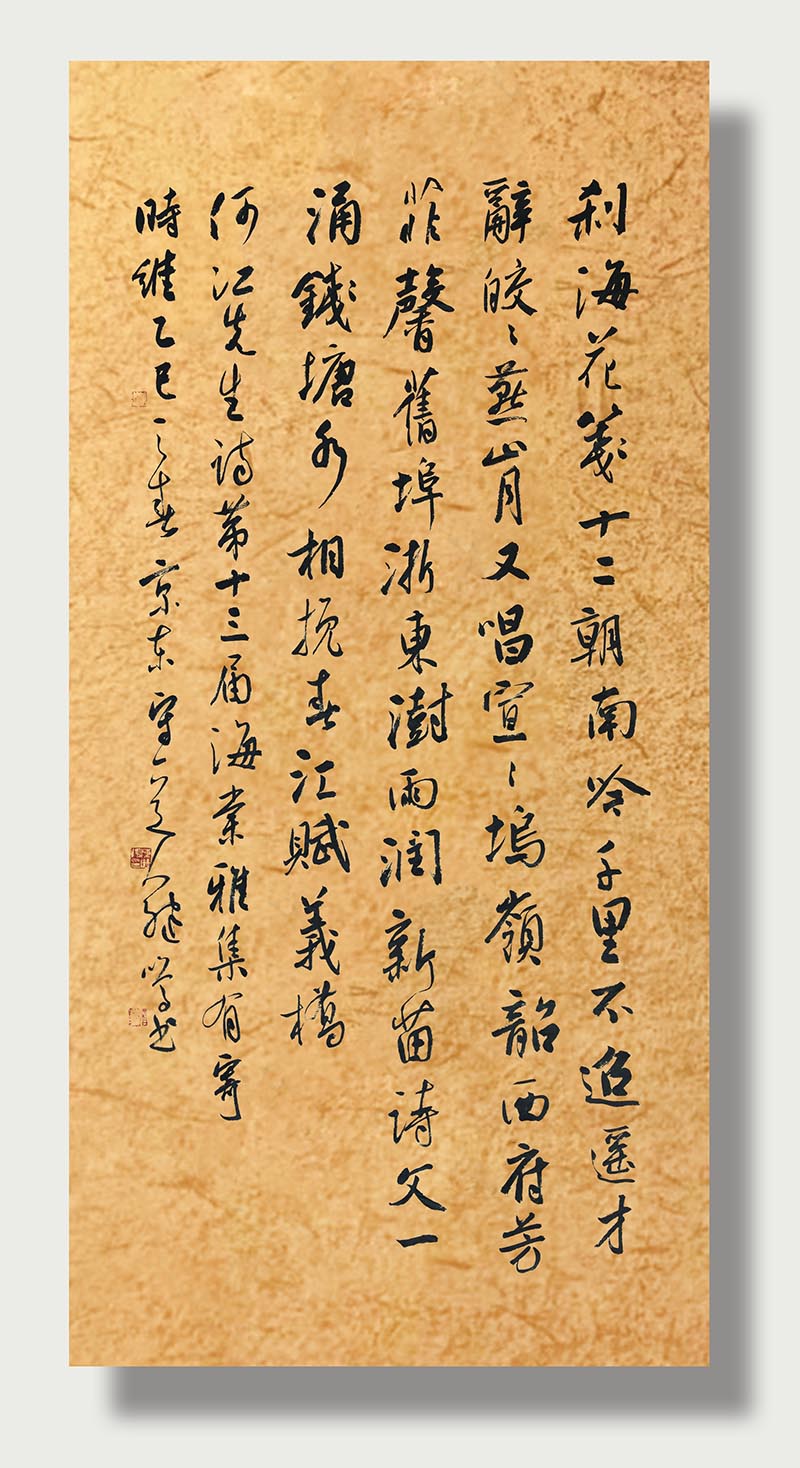 刹海花箋十二朝南吟千里不迢遥才
辭皎〻燕山月又唱宣〻塢嶺韶西府芳
菲馨舊埠浙東澍雨潤新苗詩文一
涌錢塘水相挽春江賦義橋
何江先生诗第十三届海棠雅集有寄
時維乙巳之春京东守一道人书